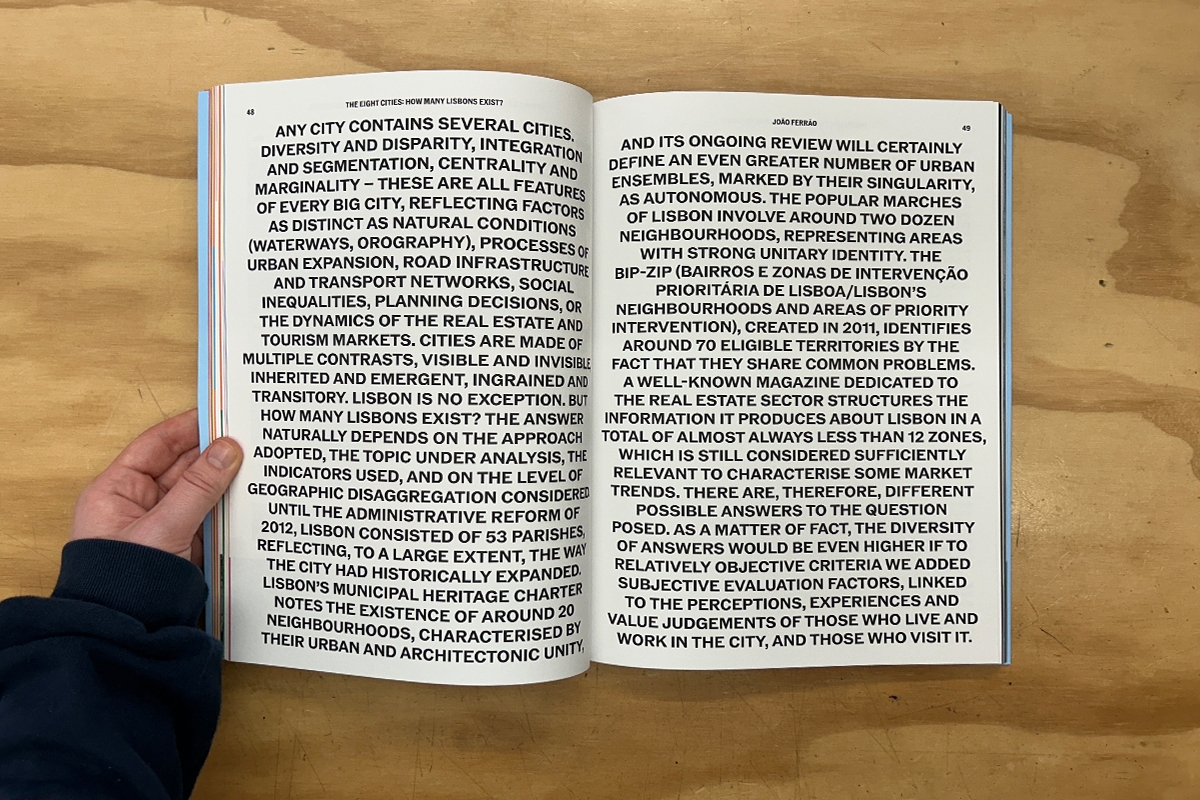 48
THE EIGHT CITIES: HOW MANY LISBONS EXIST?
ANY CITY CONTAINS SEVERAL CITIES.
DIVERSITY AND DISPARITY, INTEGRATION
AND SEGMENTATION, CENTRALITY AND
MARGINALITY – THESE ARE ALL FEATURES
OF EVERY BIG CITY, REFLECTING FACTORS
AS DISTINCT AS NATURAL CONDITIONS
(WATERWAYS, OROGRAPHY), PROCESSES OF
URBAN EXPANSION, ROAD INFRASTRUCTURE
AND TRANSPORT NETWORKS, SOCIAL
INEQUALITIES, PLANNING DECISIONS, OR
THE DYNAMICS OF THE REAL ESTATE AND
TOURISM MARKETS. CITIES ARE MADE OF
MULTIPLE CONTRASTS, VISIBLE AND INVISIBLE
INHERITED AND EMERGENT, INGRAINED AND
TRANSITORY. LISBON IS NO EXCEPTION. BUT
HOW MANY LISBONS EXIST? THE ANSWER
NATURALLY DEPENDS ON THE APPROACH
ADOPTED, THE TOPIC UNDER ANALYSIS, THE
INDICATORS USED, AND ON THE LEVEL OF
GEOGRAPHIC DISAGGREGATION CONSIDERED.
UNTIL THE ADMINISTRATIVE REFORM OF
2012, LISBON CONSISTED OF 53 PARISHES,
REFLECTING, TO A LARGE EXTENT, THE WAY
THE CITY HAD HISTORICALLY EXPANDED.
LISBON'S MUNICIPAL HERITAGE CHARTER
NOTES THE EXISTENCE OF AROUND 20
NEIGHBOURHOODS, CHARACTERISED BY
THEIR URBAN AND ARCHITECTONIC UNITY,
JOÃO FERRÃO
49
AND ITS ONGOING REVIEW WILL CERTAINLY
DEFINE AN EVEN GREATER NUMBER OF URBAN
ENSEMBLES, MARKED BY THEIR SINGULARITY,
AS AUTONOMOUS. THE POPULAR MARCHES
OF LISBON INVOLVE AROUND TWO DOZEN
NEIGHBOURHOODS, REPRESENTING AREAS
WITH STRONG UNITARY IDENTITY. THE
BIP-ZIP (BAIRROS E ZONAS DE INTERVENÇÃO
PRIORITÁRIA DE LISBOA/LISBON'S
NEIGHBOURHOODS AND AREAS OF PRIORITY
INTERVENTION), CREATED IN 2011, IDENTIFIES
AROUND 70 ELIGIBLE TERRITORIES BY THE
FACT THAT THEY SHARE COMMON PROBLEMS.
A WELL-KNOWN MAGAZINE DEDICATED TO
THE REAL ESTATE SECTOR STRUCTURES THE
INFORMATION IT PRODUCES ABOUT LISBON IN A
TOTAL OF ALMOST ALWAYS LESS THAN 12 ZONES,
WHICH IS STILL CONSIDERED SUFFICIENTLY
RELEVANT TO CHARACTERISE SOME MARKET
TRENDS. THERE ARE, THEREFORE, DIFFERENT
POSSIBLE ANSWERS TO THE QUESTION
POSED. AS A MATTER OF FACT, THE DIVERSITY
OF ANSWERS WOULD BE EVEN HIGHER IF TO
RELATIVELY OBJECTIVE CRITERIA WE ADDED
SUBJECTIVE EVALUATION FACTORS, LINKED
TO THE PERCEPTIONS, EXPERIENCES AND
VALUE JUDGEMENTS OF THOSE WHO LIVE AND
WORK IN THE CITY, AND THOSE WHO VISIT IT.